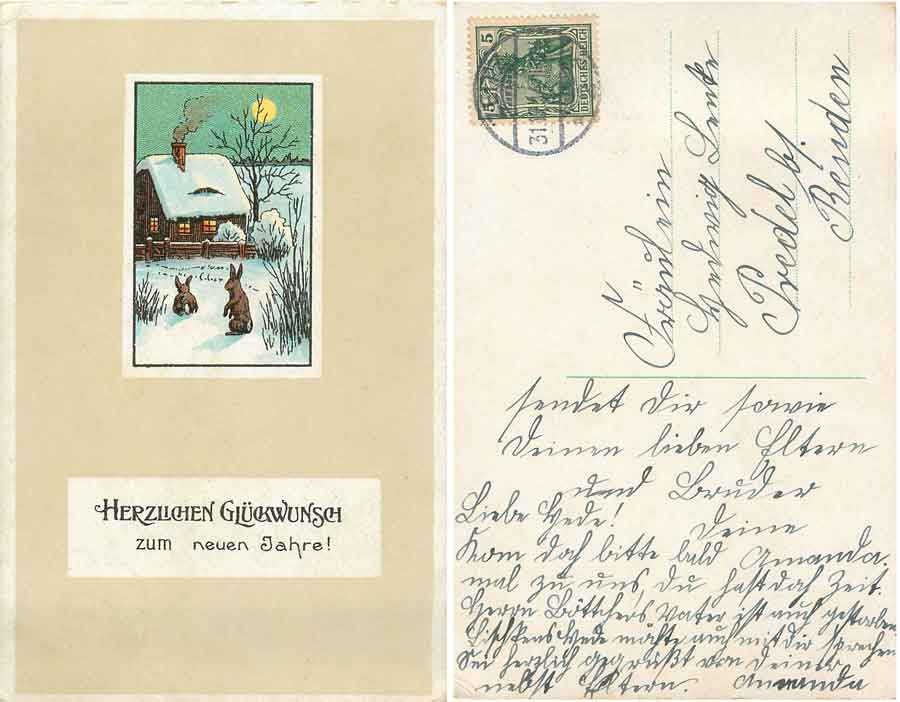 HERZLICHEN GLÜCKWUNSCH
zum neuen Jahre!
5
DEUTSCHES REICH
31.
Fräulein
Hedwig
Predel b/
Reuden
sendet Dir sowie
Deinen lieben Eltern
und Bruder
Deine
Amanda.
Liebe Hede!
Kom doch bitte bald
mal zu uns, du hast doch Zeit.
Herrn Böttchers Vater ist auch gestorben
Hede möchte auch mit dir sprechen
Sei herzlich gegrüßt von Deiner
nebst Eltern. Amanda